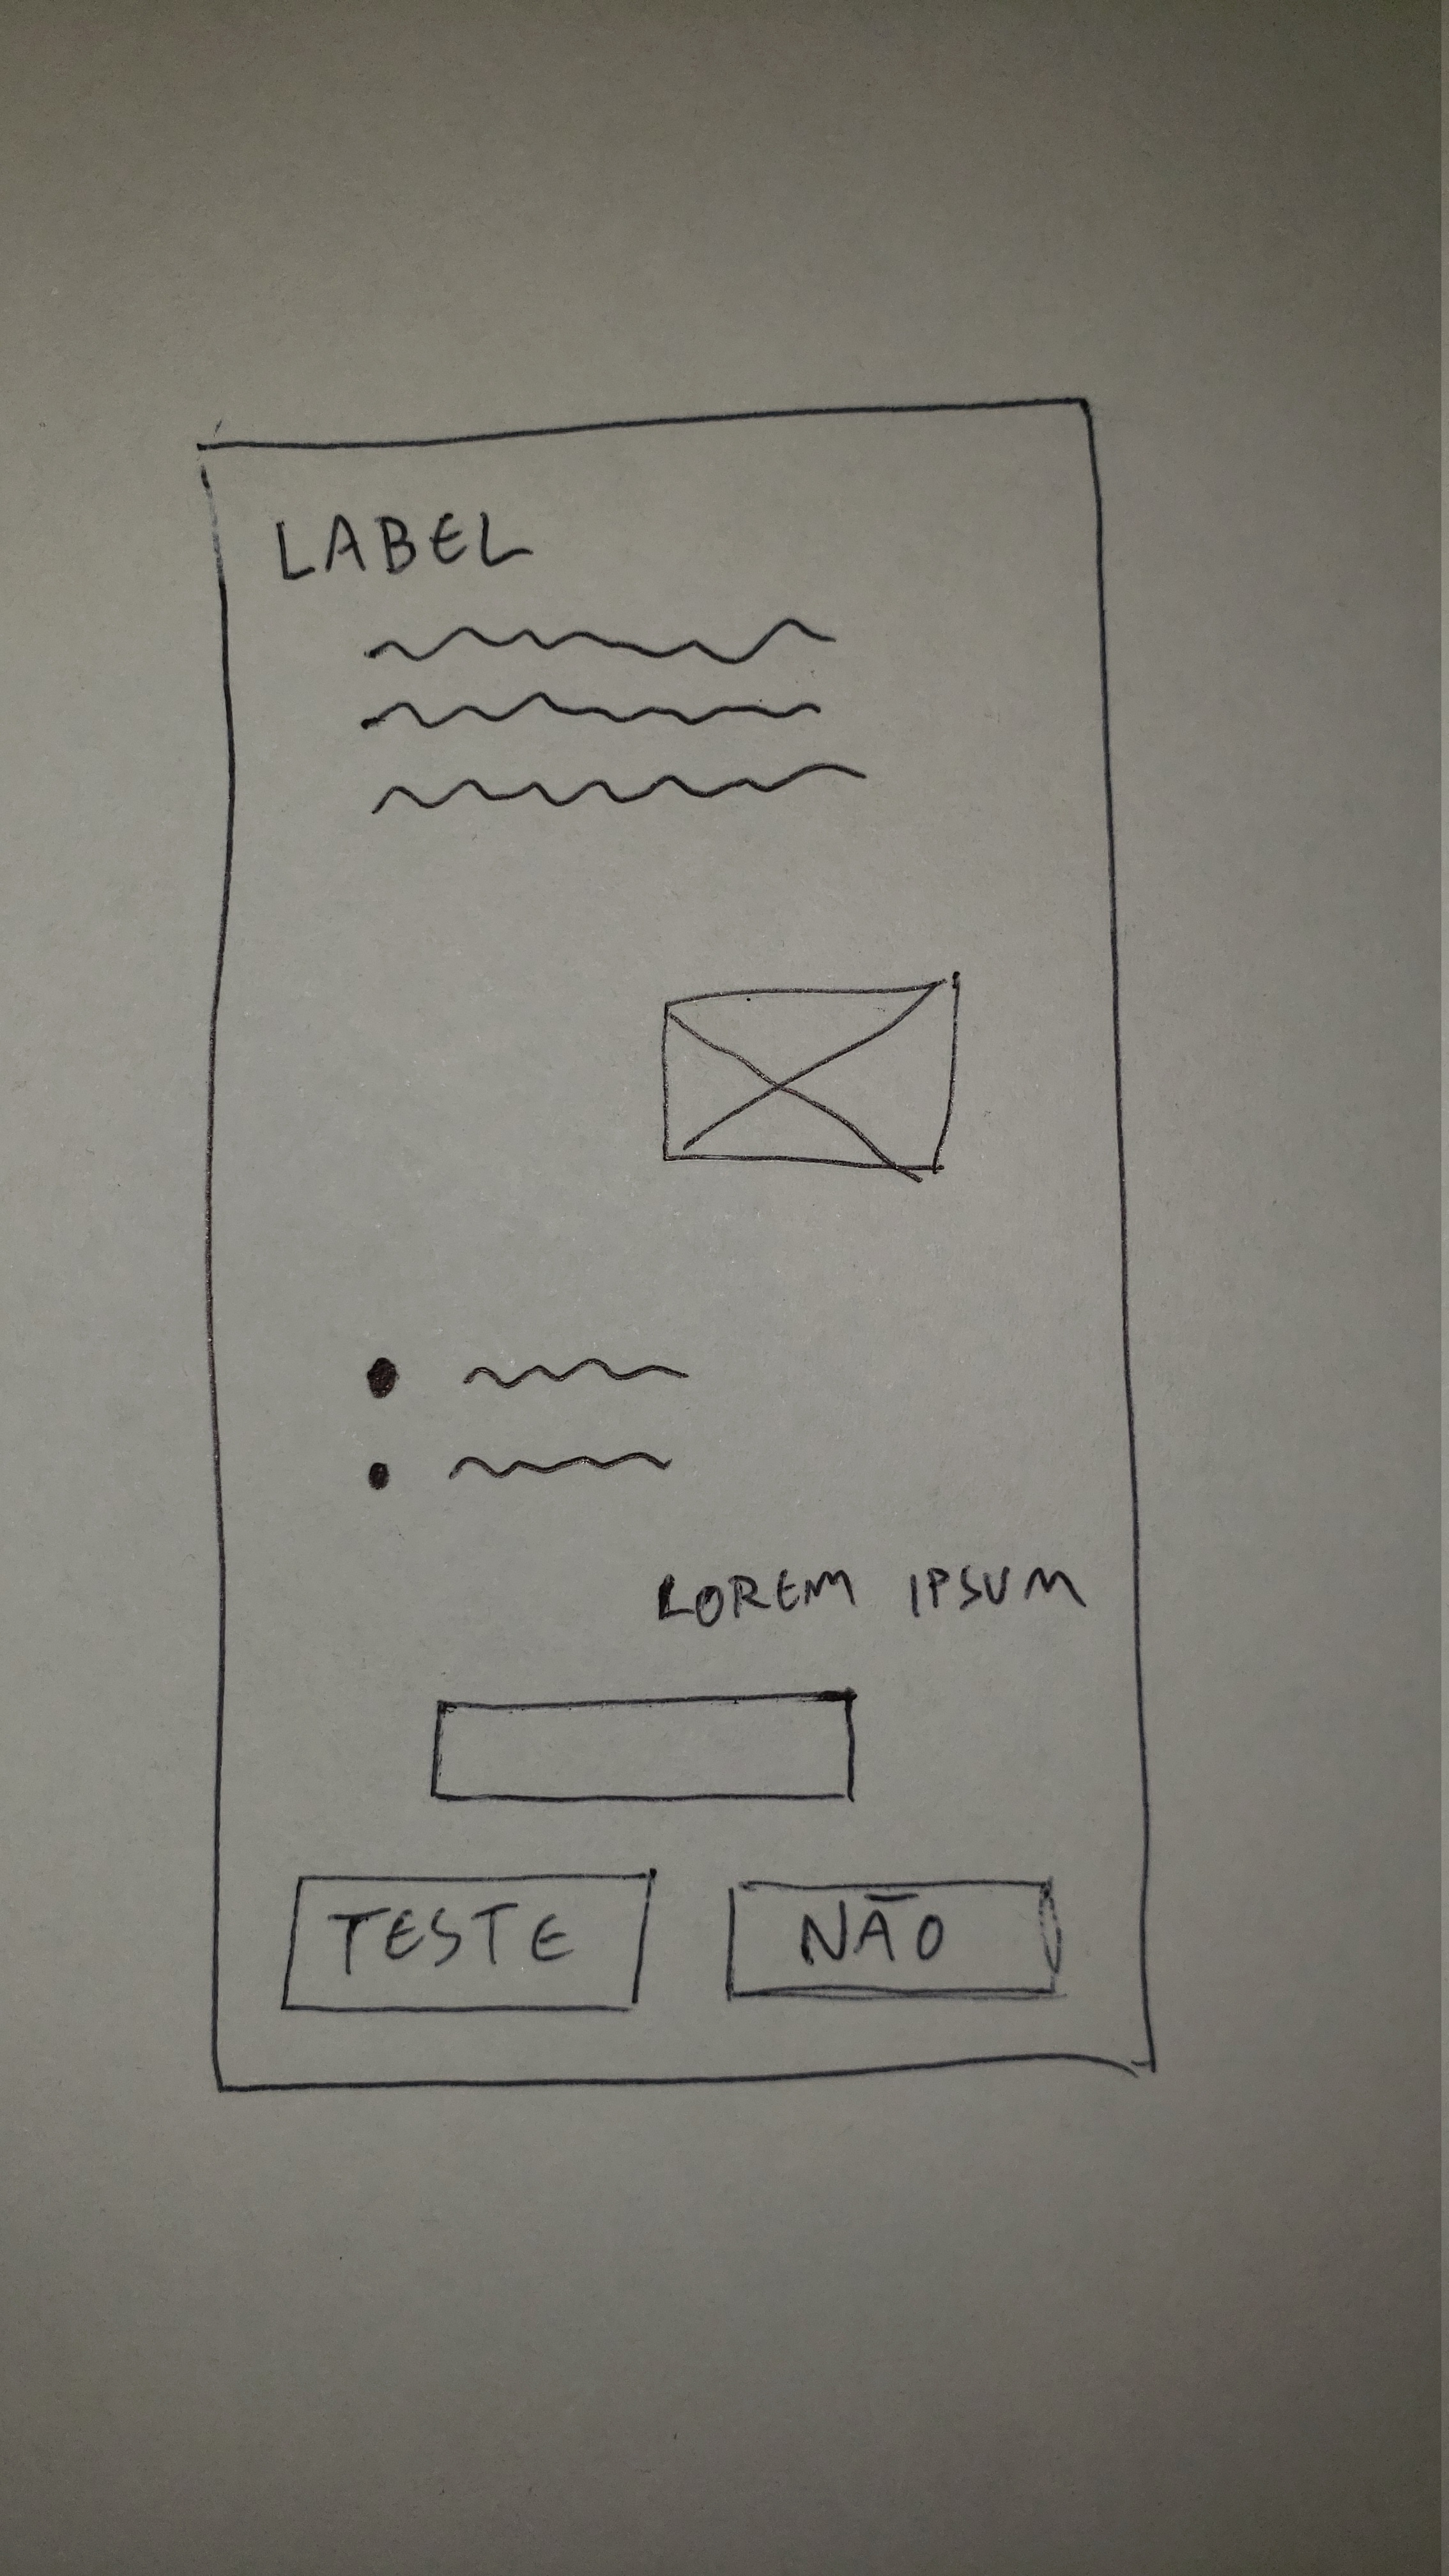 LABEL
LOREM IPSUM
TESTE
NÃO